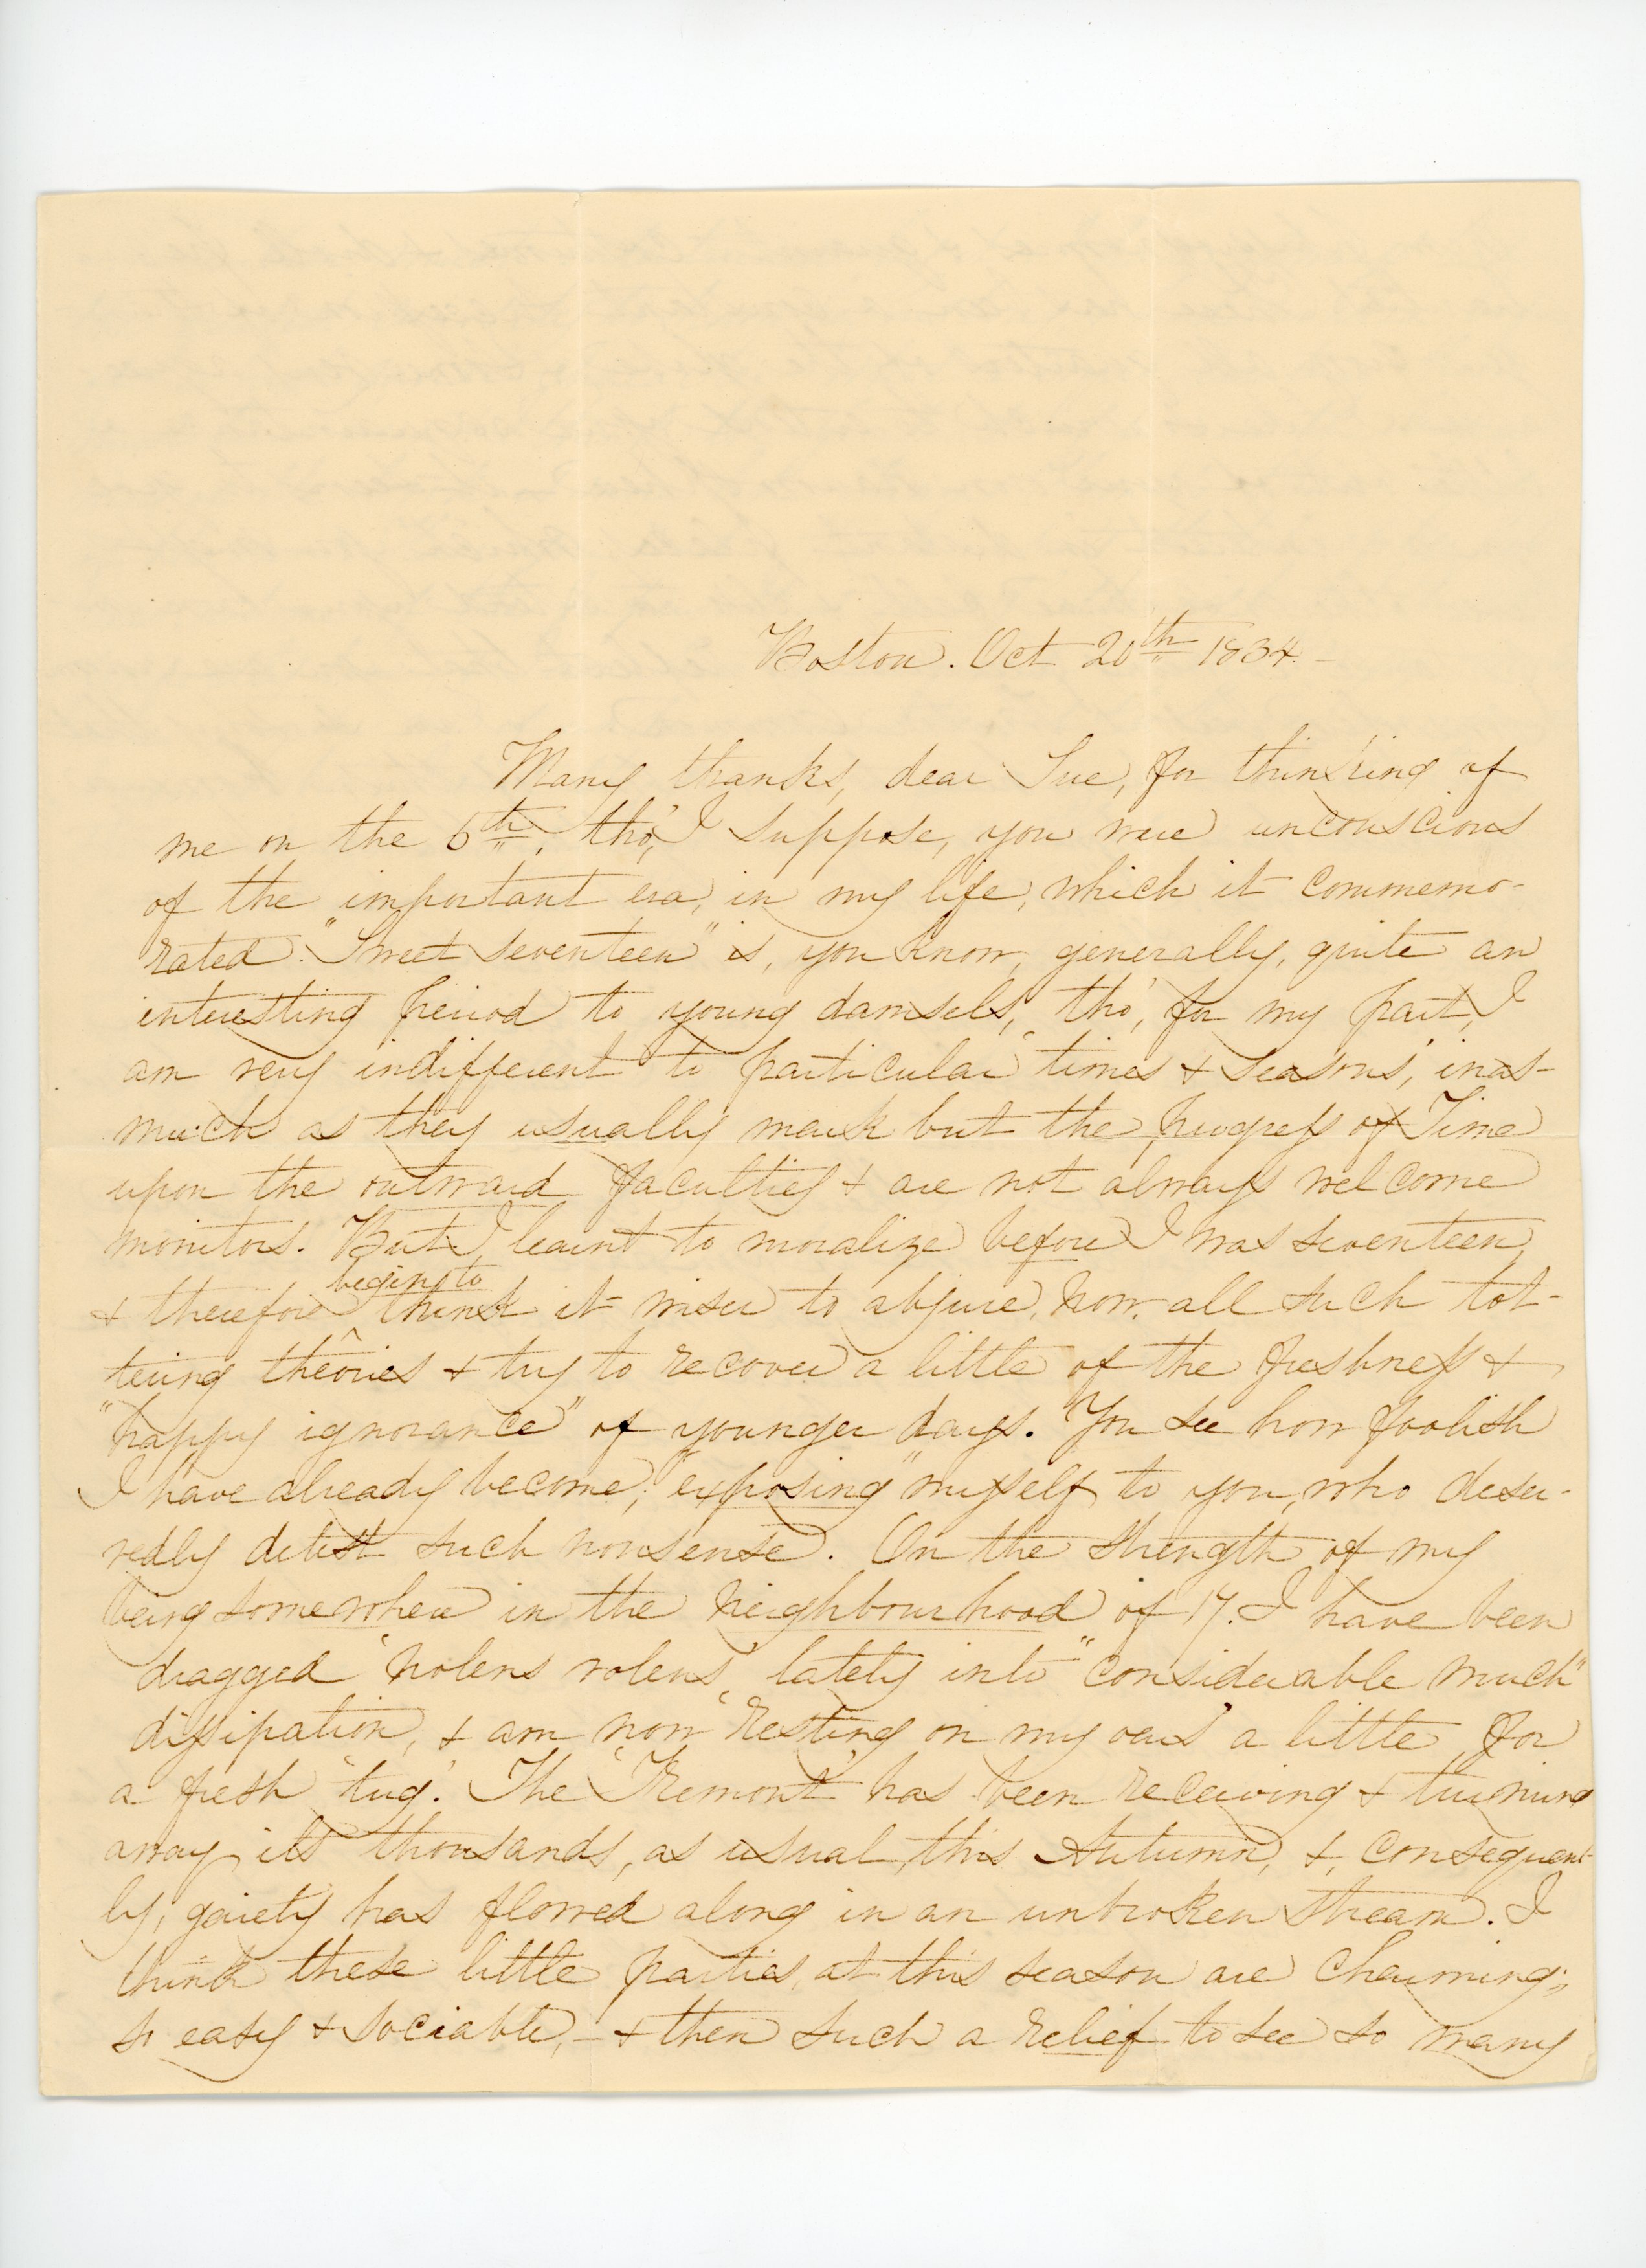 Boston. Oct 20th 1834.
Many thanks, dear Sue, for thinking of
me on the 5th, tho', I suppose, you were unconscious
of the important era, in my life, which it commemo-
rated. "Sweet seventeen" is, you know, generally, quite an
interesting period to young damsels, tho', for my part, I
am very indifferent to particular 'times & seasons', inas-
much as they usually mark but the progress of Time
upon the outward faculties & are not always welcome
monitors. But I learnt to moralize before I was seventeen,
begin to
& therefore ^ think it wiser to abjure, now, all such tot-
tering theories & try to recover a little of the freshness &
"happy ignorance" of younger days. You see how foolish
I have already become, "exposing" myself to you, who deser-
vedly detest such nonsense. On the strength of my
being somewhere in the neighbourhood of 17. I have been
dragged 'nolens volens', lately into "considerable much"
dissipation, & am now 'resting on my oars' a little for
a fresh 'tug'. The 'Tremont' has been receiving & turning
away its thousands, as usual, this Autumn, &, consequent-
ly, gaiety has flowed along in an unbroken stream. I
think these little parties, at this season are charming;
so easy & sociable,- & then such a relief to see so many